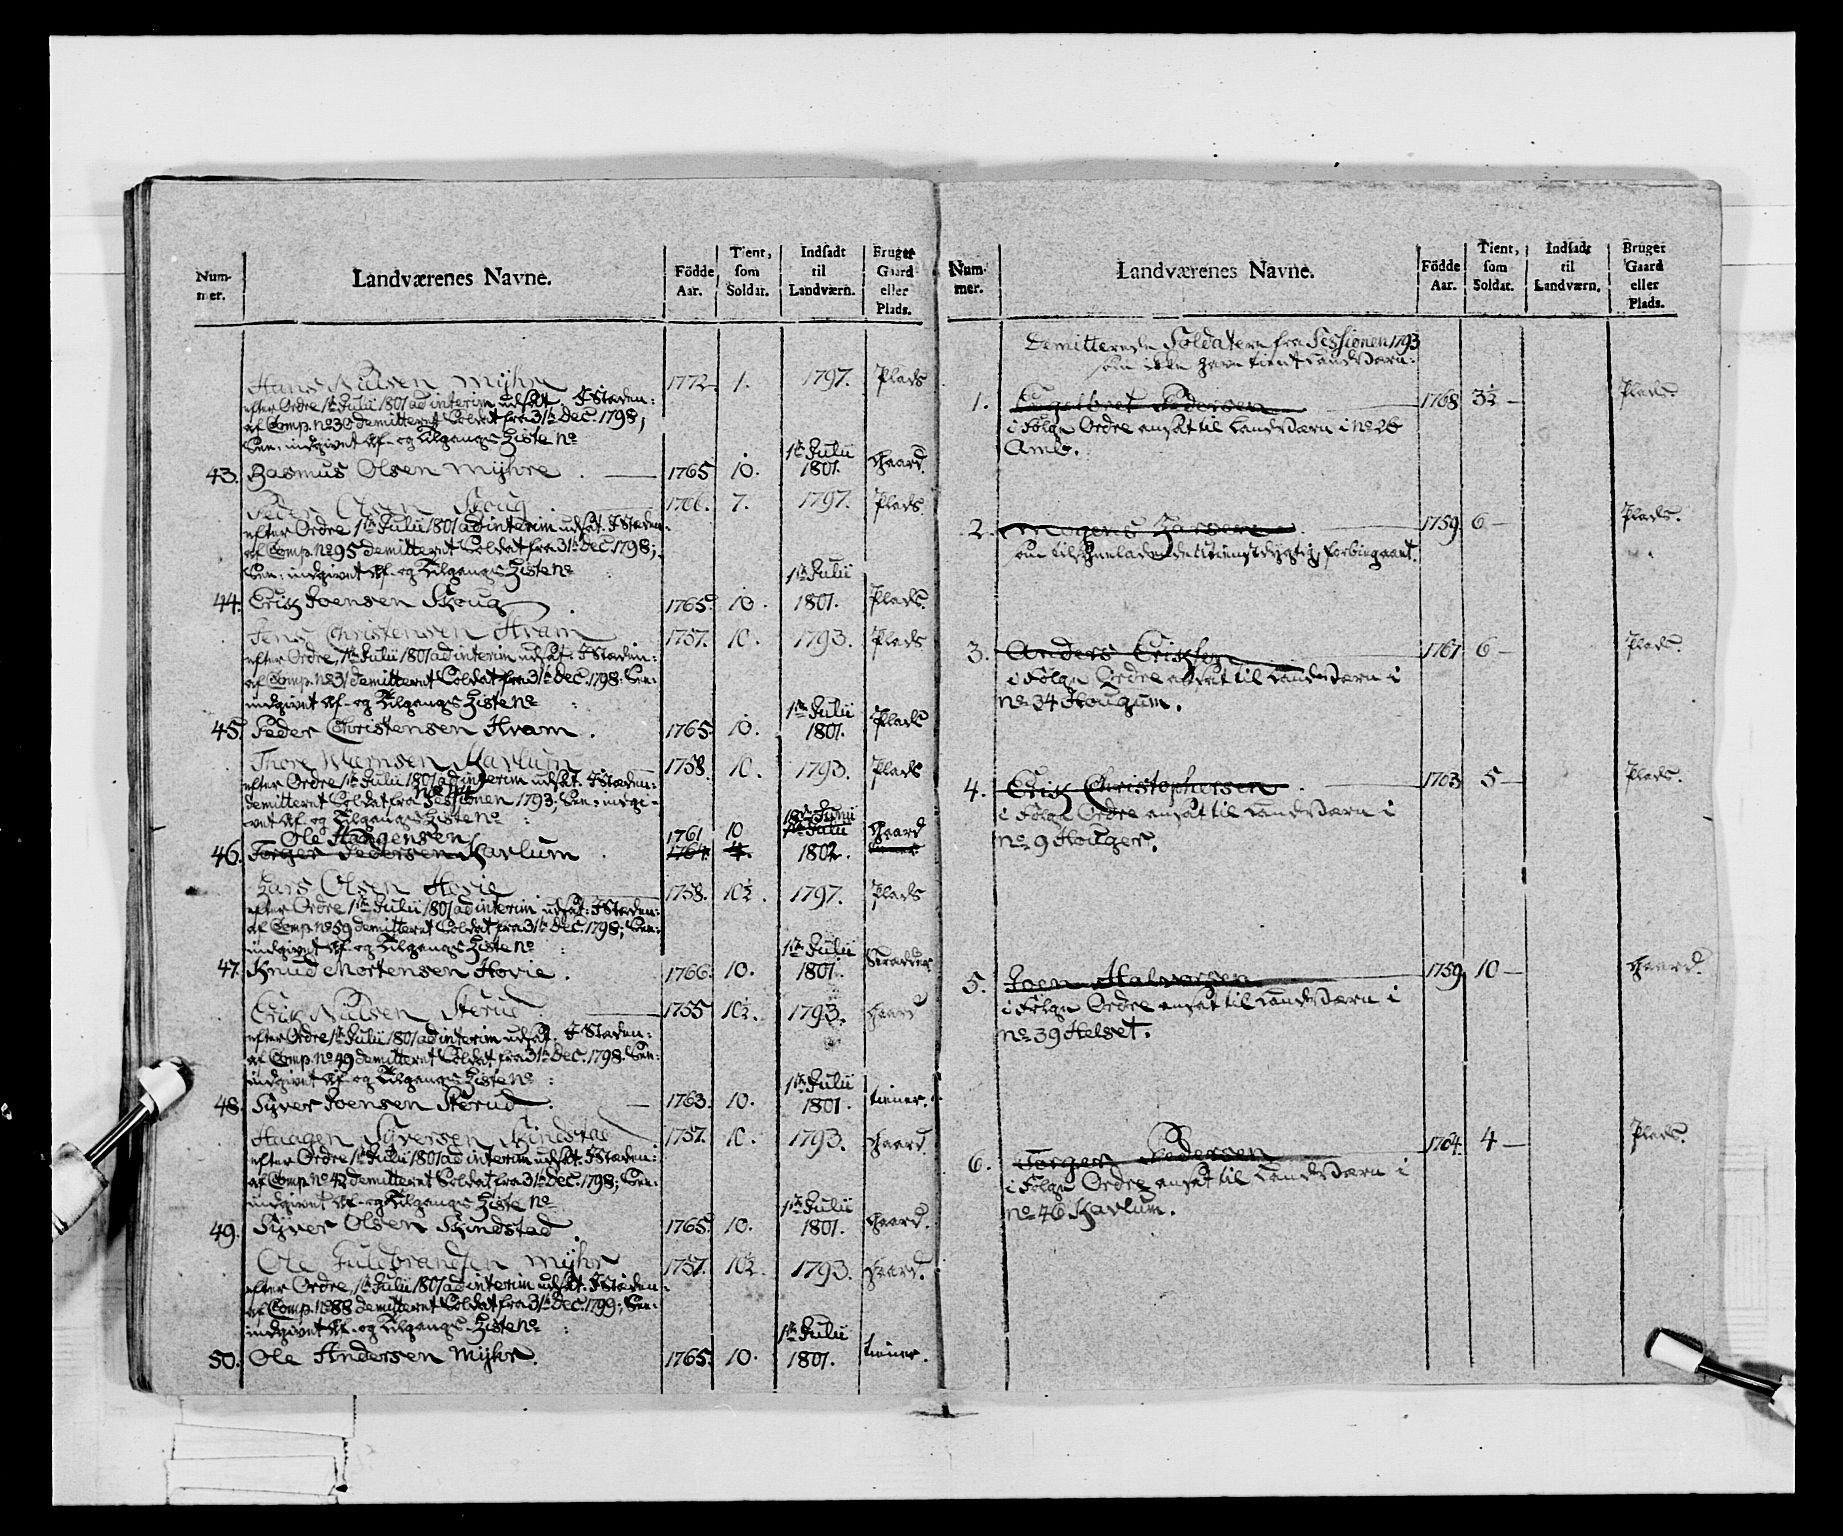 Num-
mer.
Landværenes Navne.
Födde
Aar.
Tient,
som
Soldat.
Indsadt
til
Landværn.
Bruger
Gaard
eller
Plads.
Hans Nilsen Mÿhre 1772 1. 1797. Plads
efter Ordre 1te Julii 1801 ad interim udsat. I Stæden:
af Comp. No 30 demitteret Soldat fra 31te Dec. 1798;
indgivet Af- og Tilgangs Liste No
43. Rasmus Olsen Mÿhre. 1765 10. 1te Julii 1801. Gaard.
Peder Olsen Skoug. 1766. 7. 1797. Plads
efter Ordre 1te Julii 1801 ad interim udsat. I Stæden
af Comp. No 95 demitteret Soldat fra 31te Dec. 1798;
indgivet Af- og Tilgangs Liste No
44. Erik Joensen Skoug 1765. 10. 1te Julii 1801. Plads.
Jens Christensen Hram 1757. 10. 1793. Plads
efter Ordre, 1te Julii 1801 ad interim udsat. I Stæden:
af Comp. No 31 demitteret Soldat fra 31te Dec. 1798.
indgivet Af- og Tilgangs Liste No
45. Peder Christensen Hram. 1765. 10. 1te Julii 1801. Plads
Thore Karlum 1758. 10. 1793. Plads
efter Ordre 1te Julii 1801 ad interim udsat. I Stæden:
demitteret Soldat fra Sessionen 1793; indgi-
vet Af- og Tilgangs Liste No
Ole Haagensen 1761 10 Gaard
46. Torger Pedersen Karlum. 1764. 4. 1802.
Lars Olsen Hovie 1758. 10½. 1797. Plads
efter Ordre 1te Julii 1801 ad interim udsat: I Stæden:
af Comp. No 59 demitteret Soldat fra 31te Dec. 1798;
indgivet Af- og Tilgangs Liste No
47. Knud Mortensen Hovie. 1766. 10. 1te Julii 1801.
Erik Nilsen Sterud. 1755 10½. 1793. Gaard
efter Ordre 1te Julii 1801 ad interim udsat. I Stæden:
af Comp. No 49 demitteret Soldat fra 31te Dec. 1798.
indgivet Af- og Tilgangs Liste No
48. Sÿver Joensen Sterud. 1763. 10. 1te Julii 1801. tiener.
Haagen Sÿversen Skindstad 1757. 10. 1793. Gaard.
efter Ordre 1te Julii 1801 ad interim udsat. I Stæden:
af Comp. No 42 demitteret Soldat fra 31te Dec. 1798;
indgivet Af- og Tilgangs Liste No
49. Sÿver Olsen Skindstad 1765. 10. 1te Julii 1801. Gaard.
Ole Guldbrandsen Mÿhr 1757. 10½. 1793. Gaard.
efter Ordre, 1te Julii 1801 ad interim udsat. I Stæden
af Comp. No 88 demitteret Soldat fra 31te Dec. 1799;
indgivet Af- og Tilgangs Liste No
50. Ole Andersen Mÿhr. 1765. 10. 1te Julii 1801. tiener.
Num-
mer.
Landværenes Navne.
Födde
Aar.
Tient,
som
Soldat.
Indsadt
til
Landværn.
Bruger
Gaard
eller
Plads.
Demitterede Soldater fra Sessionen 1793
som ikke have tient Landværn.
1. Engelbret Pedersen 1768 3½ Plads.
i Følge Ordre ansat til Landværn i No 26
Amb.
2. Mogens Larsen 1759 6 Plads.
forbiegaaet.
3. Anders Eriksen 1767 6 Plads.
i Følge Ordre ansat til Landværn i
No 34 Hougum.
4. Erik Christophersen 1763 5 Plads.
i Følge Ordre ansat til Landværn i
No 9 Houger.
5. Joen Halvorsen 1759 10 Gaard.
i Følge Ordre ansat til Landværn i
No 39 Helset.
6. Torger Pedersen 1764. 4 Plads.
i Følge Ordre ansat til Landværn i
No 46 Karlum.